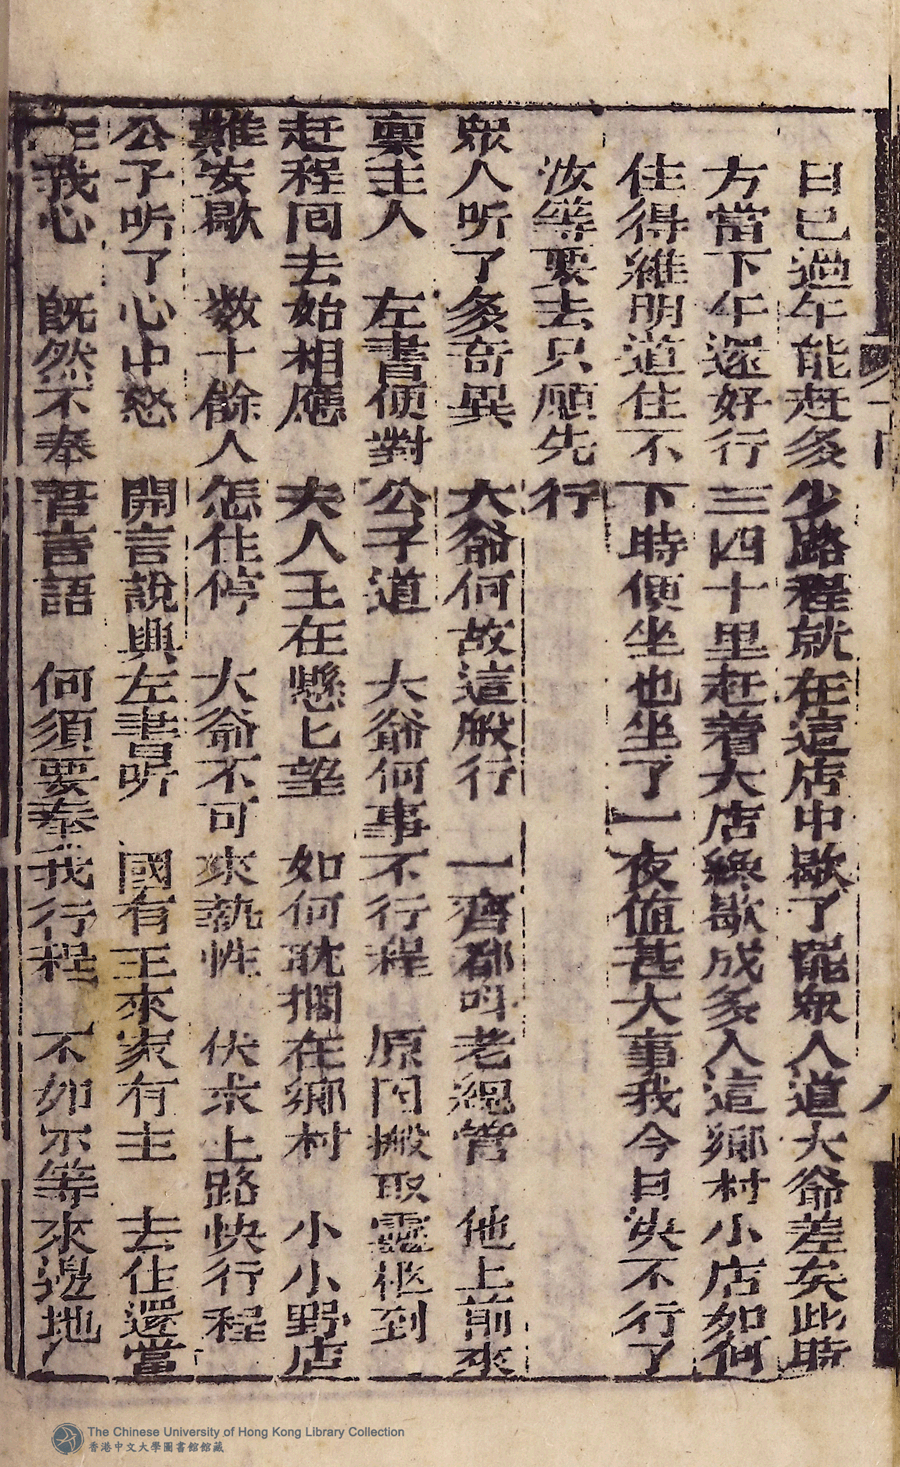 日已過午能赶多少路程就在這店中歇了罷眾人道大爺差矣此時
方當下午還好行三四十里赶着大店終歇成多入這鄉村小店如何
住得維明道住不下時便坐也坐了一夜值甚大事我今日决不行了
汝等要去只願先行
眾人听了多奇異 大爺何故這般行 一齊都呌老緫管 他上前來
稟主人 左書便對公子道 大爺何事不行程 原因搬取靈柩到
赶程囘去始相應 夫人王在懸匕望 如何耽擱在鄉村 小小野店
難安歇 数十餘人怎住停 大爺不可來執性 伏求上路快行程
公子听了心中怒 開言說與左書听 國有王來家有主 去住還當
在我心 既然不奉吾言語 何須要奉我行程 不如尔等來邊地
The Chinese University of Hong Kong Library Collection
香港中文大學圖書館館藏